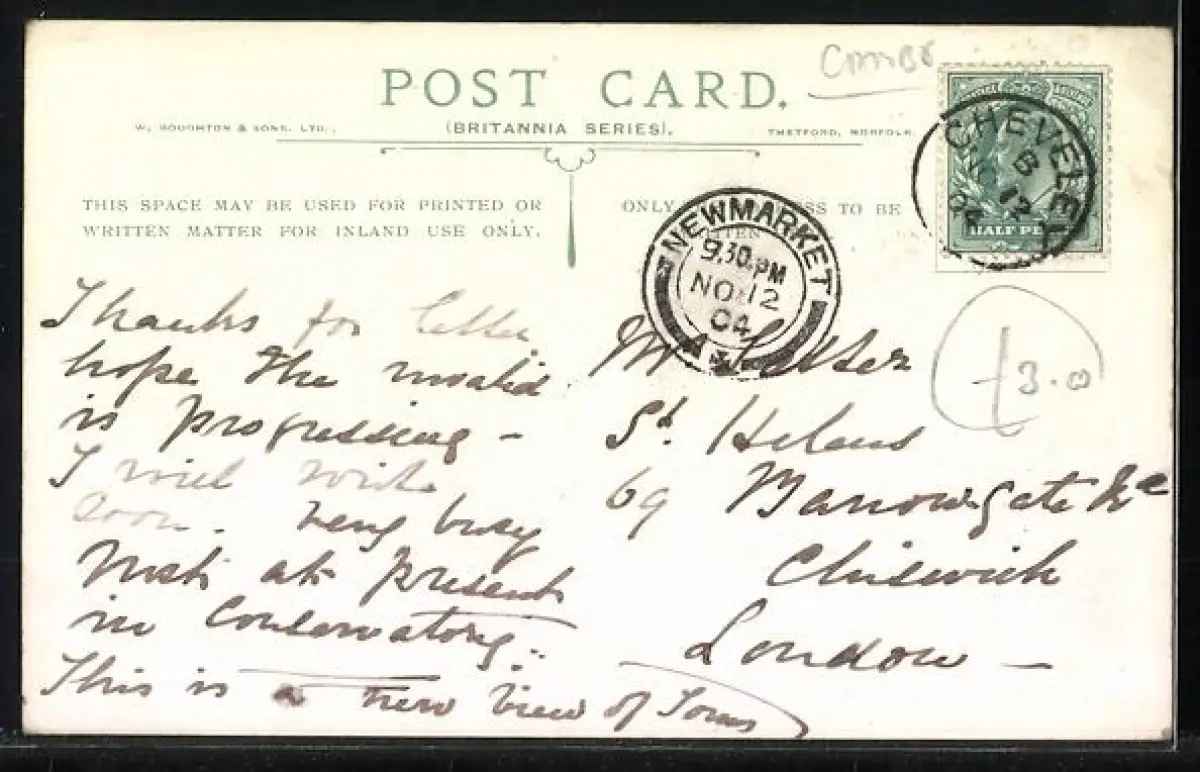 POST CARD.
W. BOUGHTON & SONS, LTD.,
(BRITANNIA SERIES).
THETFORD, NORFOLK.
THIS SPACE MAY BE USED FOR PRINTED OR
WRITTEN MATTER FOR INLAND USE ONLY.
ONLY TO BE
CHEVELEY
B
NO 12
04
HALF PE
NEWMARKET
9.30.PM
NO 12
04
£3.0
Thanks for letter
hope the invalid
is progressing -
I will write
soon. very busy
at present
in Conservatory.
This is a new view of
M
St. Helens
69 Barrowgate Rd
Chiswick
London -